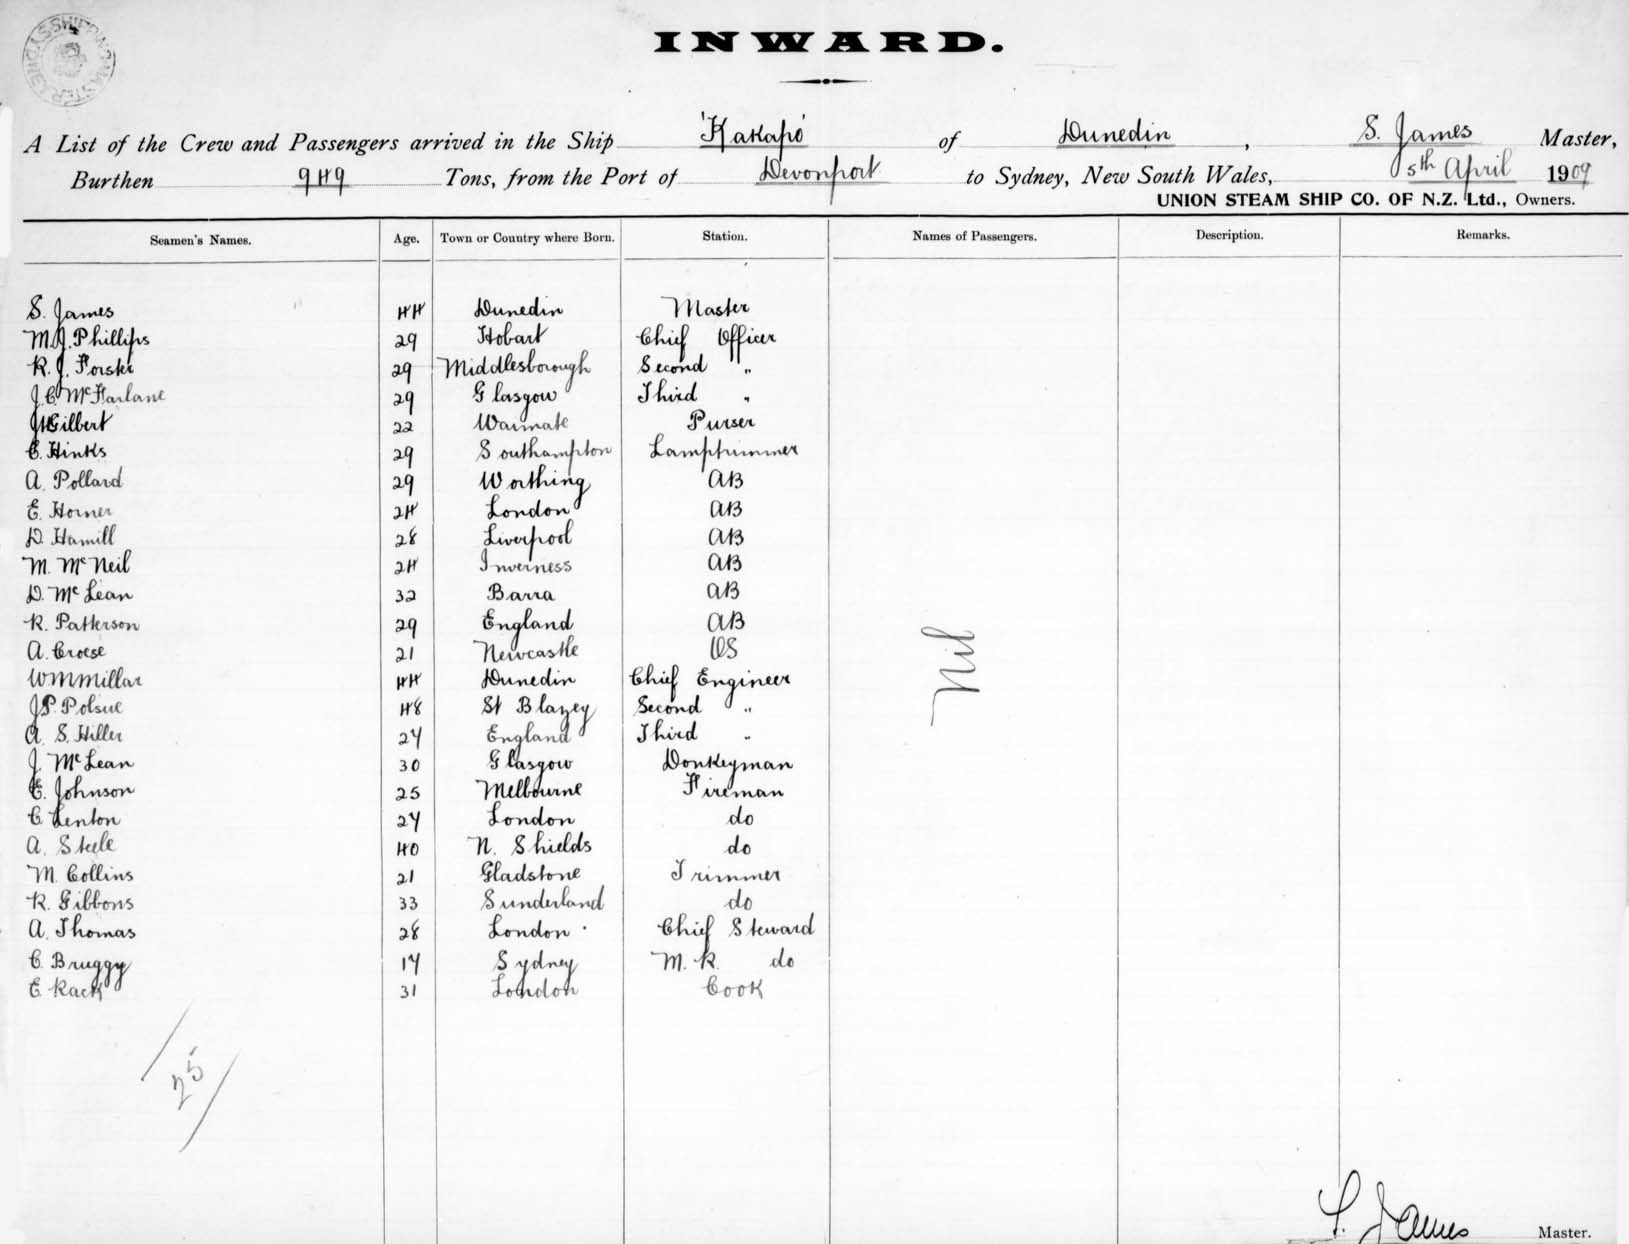 INWARD.
A List of the Crew and Passengers arrived in the Ship 'Kakapo' of Dunedin, S. James Master,
Burthen 949 Tons, from the Port of Devonport to Sydney, New South Wales, 5th April 1909
UNION STEAM SHIP CO. OF N.Z. Ltd., Owners.
Seamen's Names. Age. Town or Country where Born. Station. Names of Passengers. Description. Remarks.
S. James 44 Dunedin Master
M.J. Phillips 29 Hobart Chief Officer
R. J. Forster 29 Middlesborough Second "
J.C. McFarlane 29 Glasgow Third "
Gilbert 22 Waimate Purser
C. Hinks 29 Southampton Lamptrimmer
A. Pollard 29 Worthing AB
E. Horner 24 London AB
D. Hamill 28 Liverpool AB
M. McNeil 24 Inverness AB
D. McLean 32 Barra AB
R. Patterson 29 England AB
A. Croese 21 Newcastle OS
Nil
W M Millar 44 Dunedin Chief Engineer
J P Polsue 48 St Blazey Second "
A. S. Hiller 27 England Third "
J. McLean 30 Glasgow Donkeyman
E. Johnson 25 Melbourne Fireman
C Lenton 27 London do
A. Steele 40 N. Shields do
M. Collins 21 Gladstone Trimmer
R. Gibbons 33 Sunderland do
A. Thomas 28 London Chief Steward
C. Bruggy 17 Sydney M. R. do
E Rack 31 London Cook
25
S. James Master.